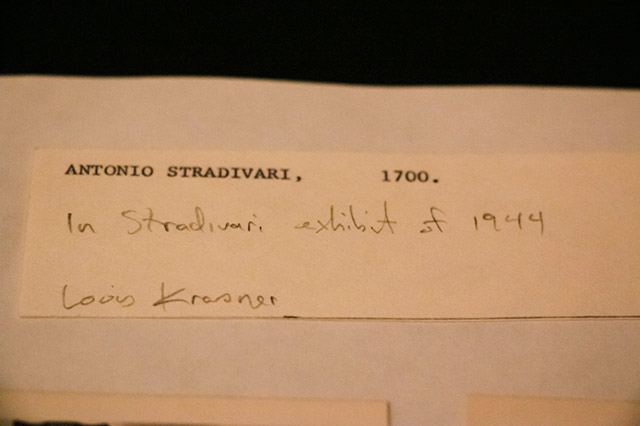 ANTONIO STRADIVARI, 1700.
In Stradivari exhibit of 1944
Louis Krasner